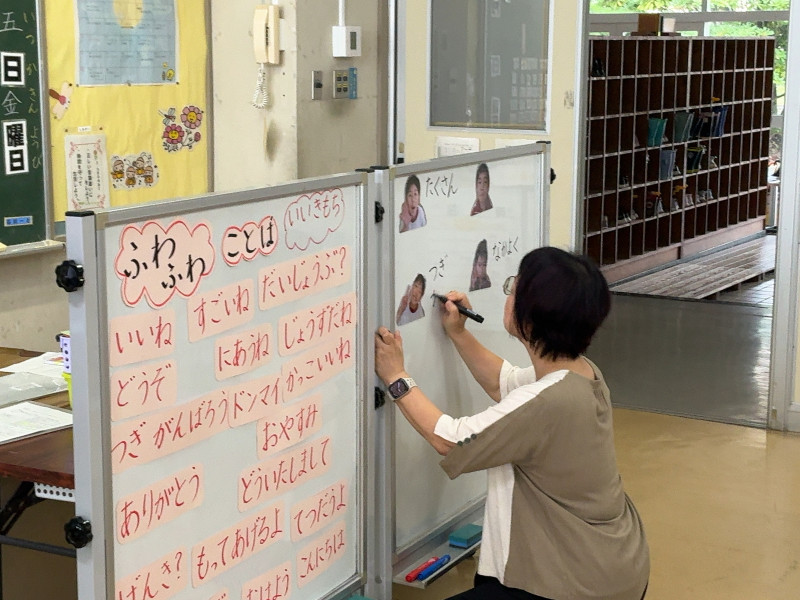 五
いつかさんようび
日
金
曜日
ふわ
ふわ
ことば
いいきもち
いいね
すごいね
だいじょうぶ?
にあうね
じょうずだね
どうぞ
ドンマイ
かっこいいね
つぎがんばろう
おやすみ
どういたしまして
ありがとう
もってあげるよ
てつだうよ
げんき?
おはよう
こんにちは
たくさん
つぎ
なかよく